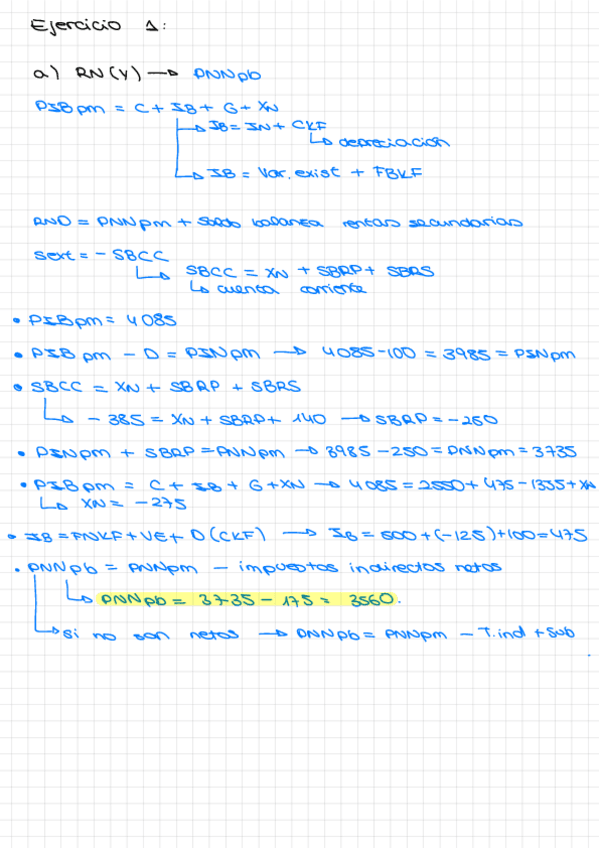 Ejercicio 1:
a) RN(Y) → PNNpb
PIBpm = C + IB + G + XN
→ IB = IN + CKF
→ depreciación
→ IB = Var. exist + FBKF
RND = PNNpm + Saldo balanza rentas secundarias
Sext = - SBCC
→ SBCC = XN + SBRP + SBRS
→ cuenta corriente
• PIBpm = 4085
• PIB pm - D = PINpm → 4085-100 = 3985 = PINpm
• SBCC = XN + SBRP + SBRS
→ - 385 = XN + SBRP + 140 → SBRP = -250
• PINpm + SBRP = PNNpm → 3985 - 250 = PNNpm = 3735
• PIBpm = C + IB + G + XN → 4085 = 2550 + 475 - 1335 + XN
→ XN = - 275
• IB = FNKF + VE + D (CKF) → IB = 500 + (-125) + 100 = 475
• PNNpb = PNNpm - impuestos indirectos netos
→ PNNpb = 3735 - 175 = 3560.
→ si no son netos → PNNpb = PNNpm - T.ind + Sub